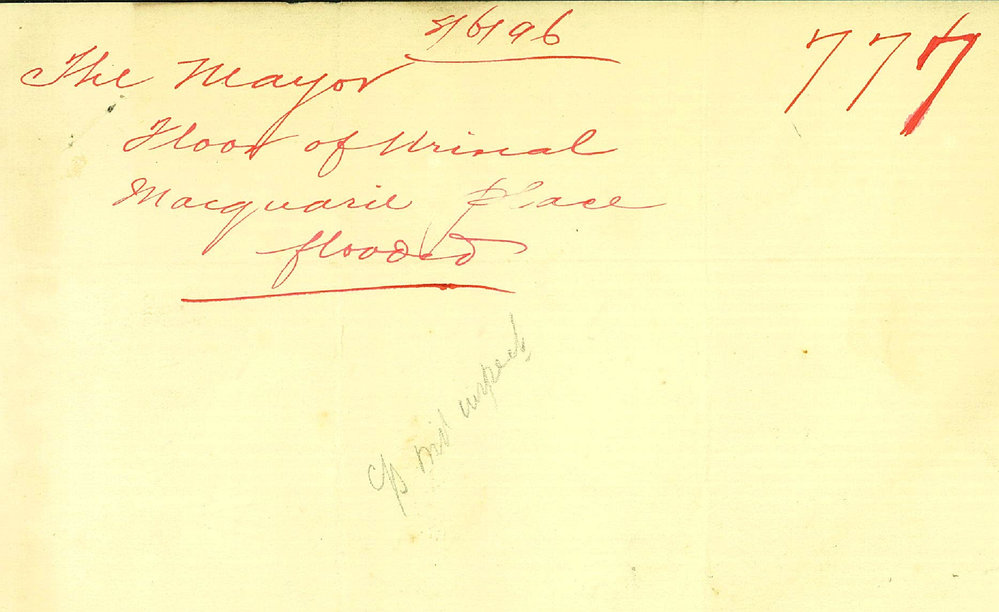 4/6/96
777
The Mayor
Floor of Urinal
Macquarie Place
flooded
inspect